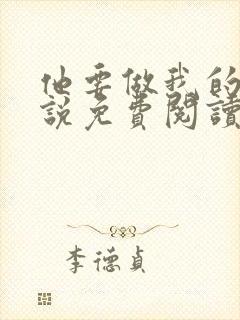 他要做我的
說免費閱讀
李德貞